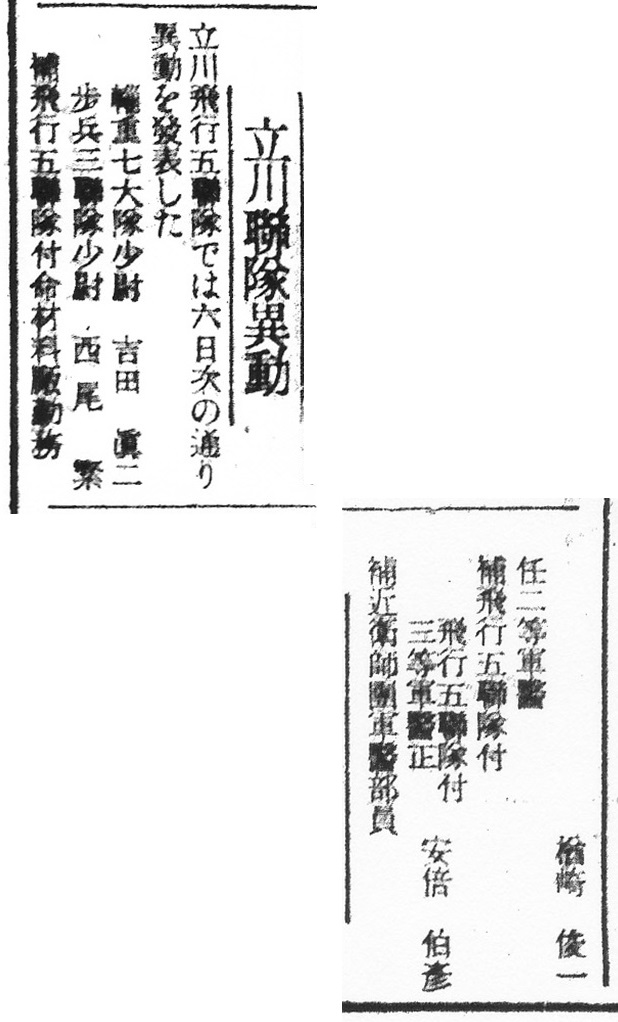 立川聯隊異動
立川飛行五聯隊では六日次の通り
異動を發表した
輜重七大隊少尉　吉田　眞二
步兵三聯隊少尉　西尾　繁
補飛行五聯隊付命材料廠勤務
楢崎　俊一
任二等軍醫
補飛行五聯隊付
飛行五聯隊付
三等軍醫正　安倍　伯彥
補近衛師團軍醫部員